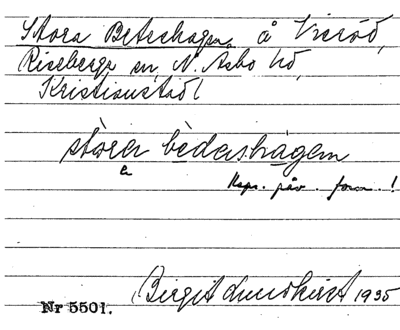 Stora Beteshagen, å
Riseberga sn, N. Åsbo hd,
Kristianstad l
stòra bèdashàgen
a
form. !
Birgit Lundkvist 1935
Nr 5501.